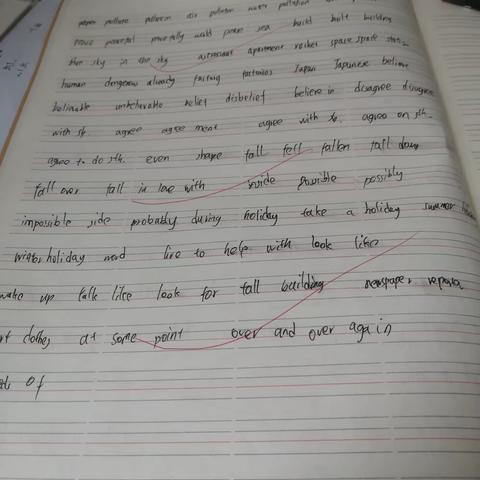 paper pollute pollution air pollution water pollution
peace peaceful peacefully world peace sea build built building
the sky in the sky astronaut apartment rocket space space station
human dangerous already factory factories Japan Japanese believe
believable unbelievable belief disbelief believe in disagree disagree
with sb. agree agreement agree with sb. agree on sth.
agree to do sth. even shape fall fell fallen fall down
fall over fall in love with inside possible possibly
impossible side probably during holiday take a holiday summer
winter holiday word like to help with look like
wake up talk like look for fall building newspaper reporter
clothes at some point over and over again
of